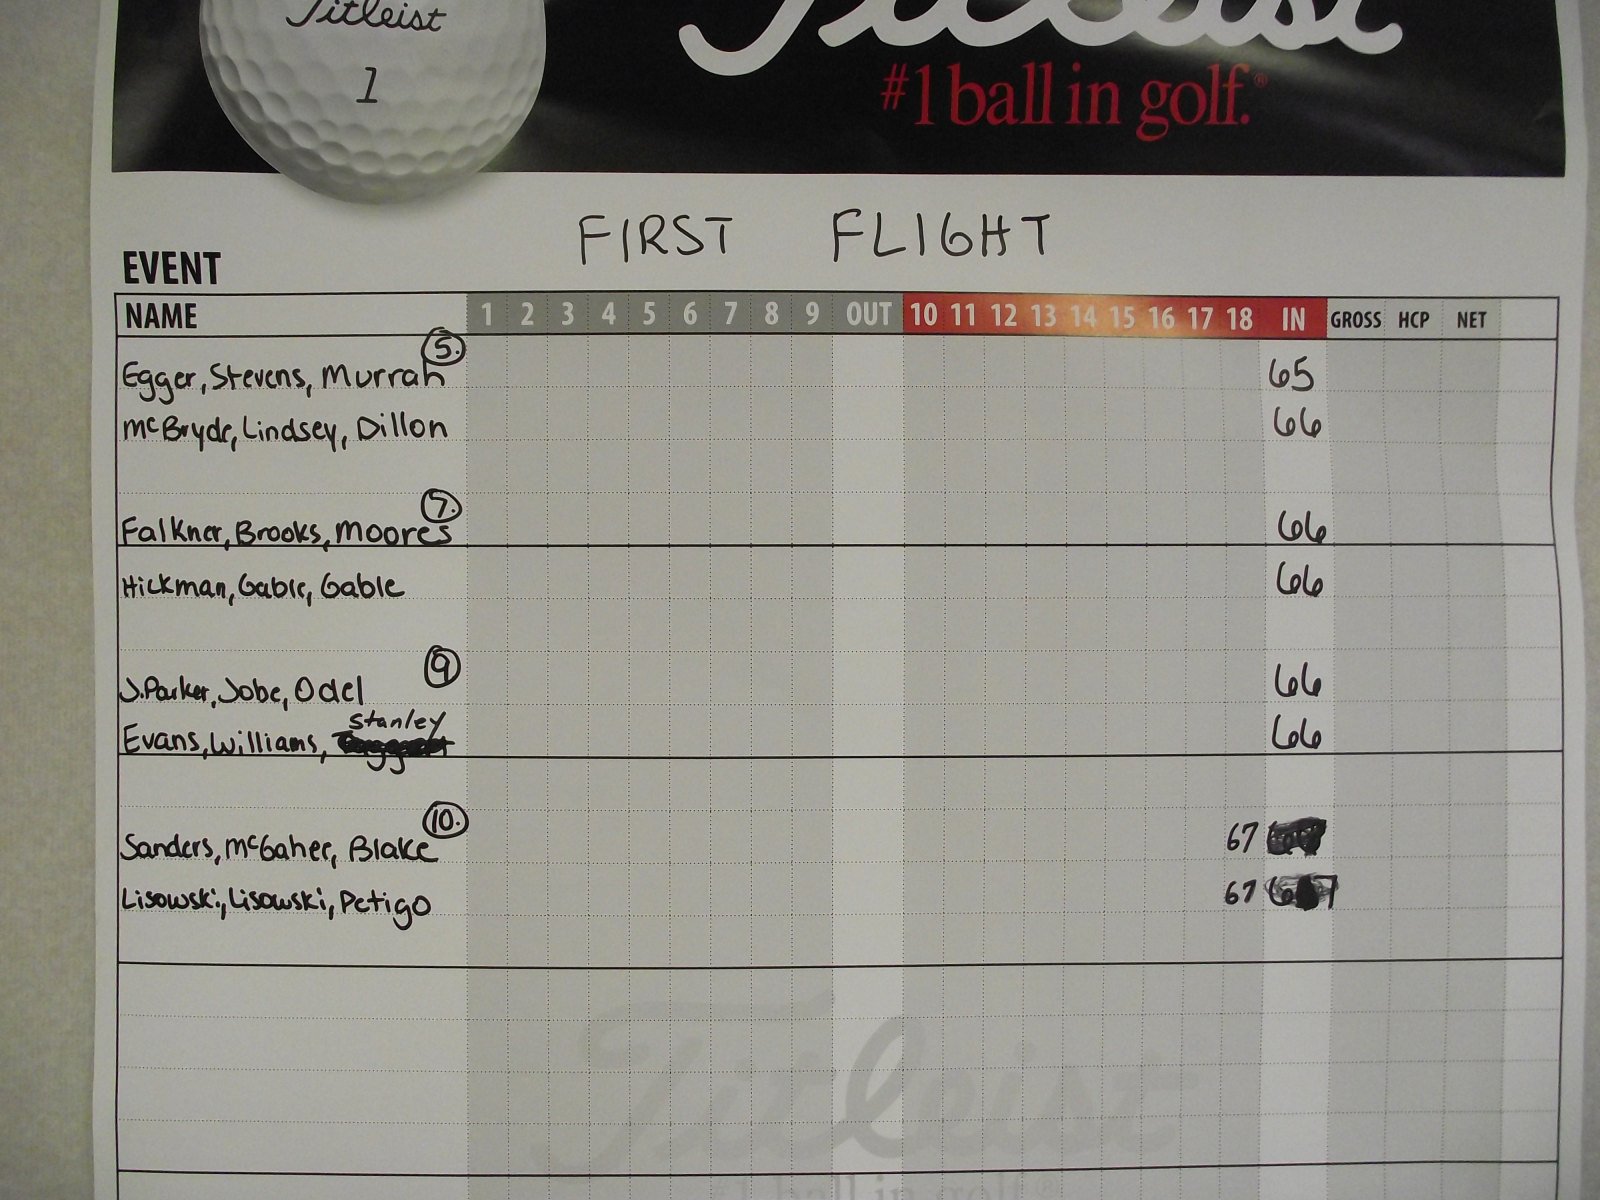 Titleist
1
Titleist
#1 ball in golf.®
FIRST FLIGHT
EVENT
NAME 1 2 3 4 5 6 7 8 9 OUT 10 11 12 13 14 15 16 17 18 IN GROSS HCP NET
5.
Egger, Stevens, Murrah 65
McBryde, Lindsey, Dillon 66
7.
Falkner, Brooks, Moores 66
Hickman, Gable, Gable 66
9
J. Parker, Jobe, Odel 66
Stanley
Evans, Williams, 66
10.
Sanders, McGaher, Blake 67
Lisowski, Lisowski, Petigo 67
Titleist
#1 ball in golf.®